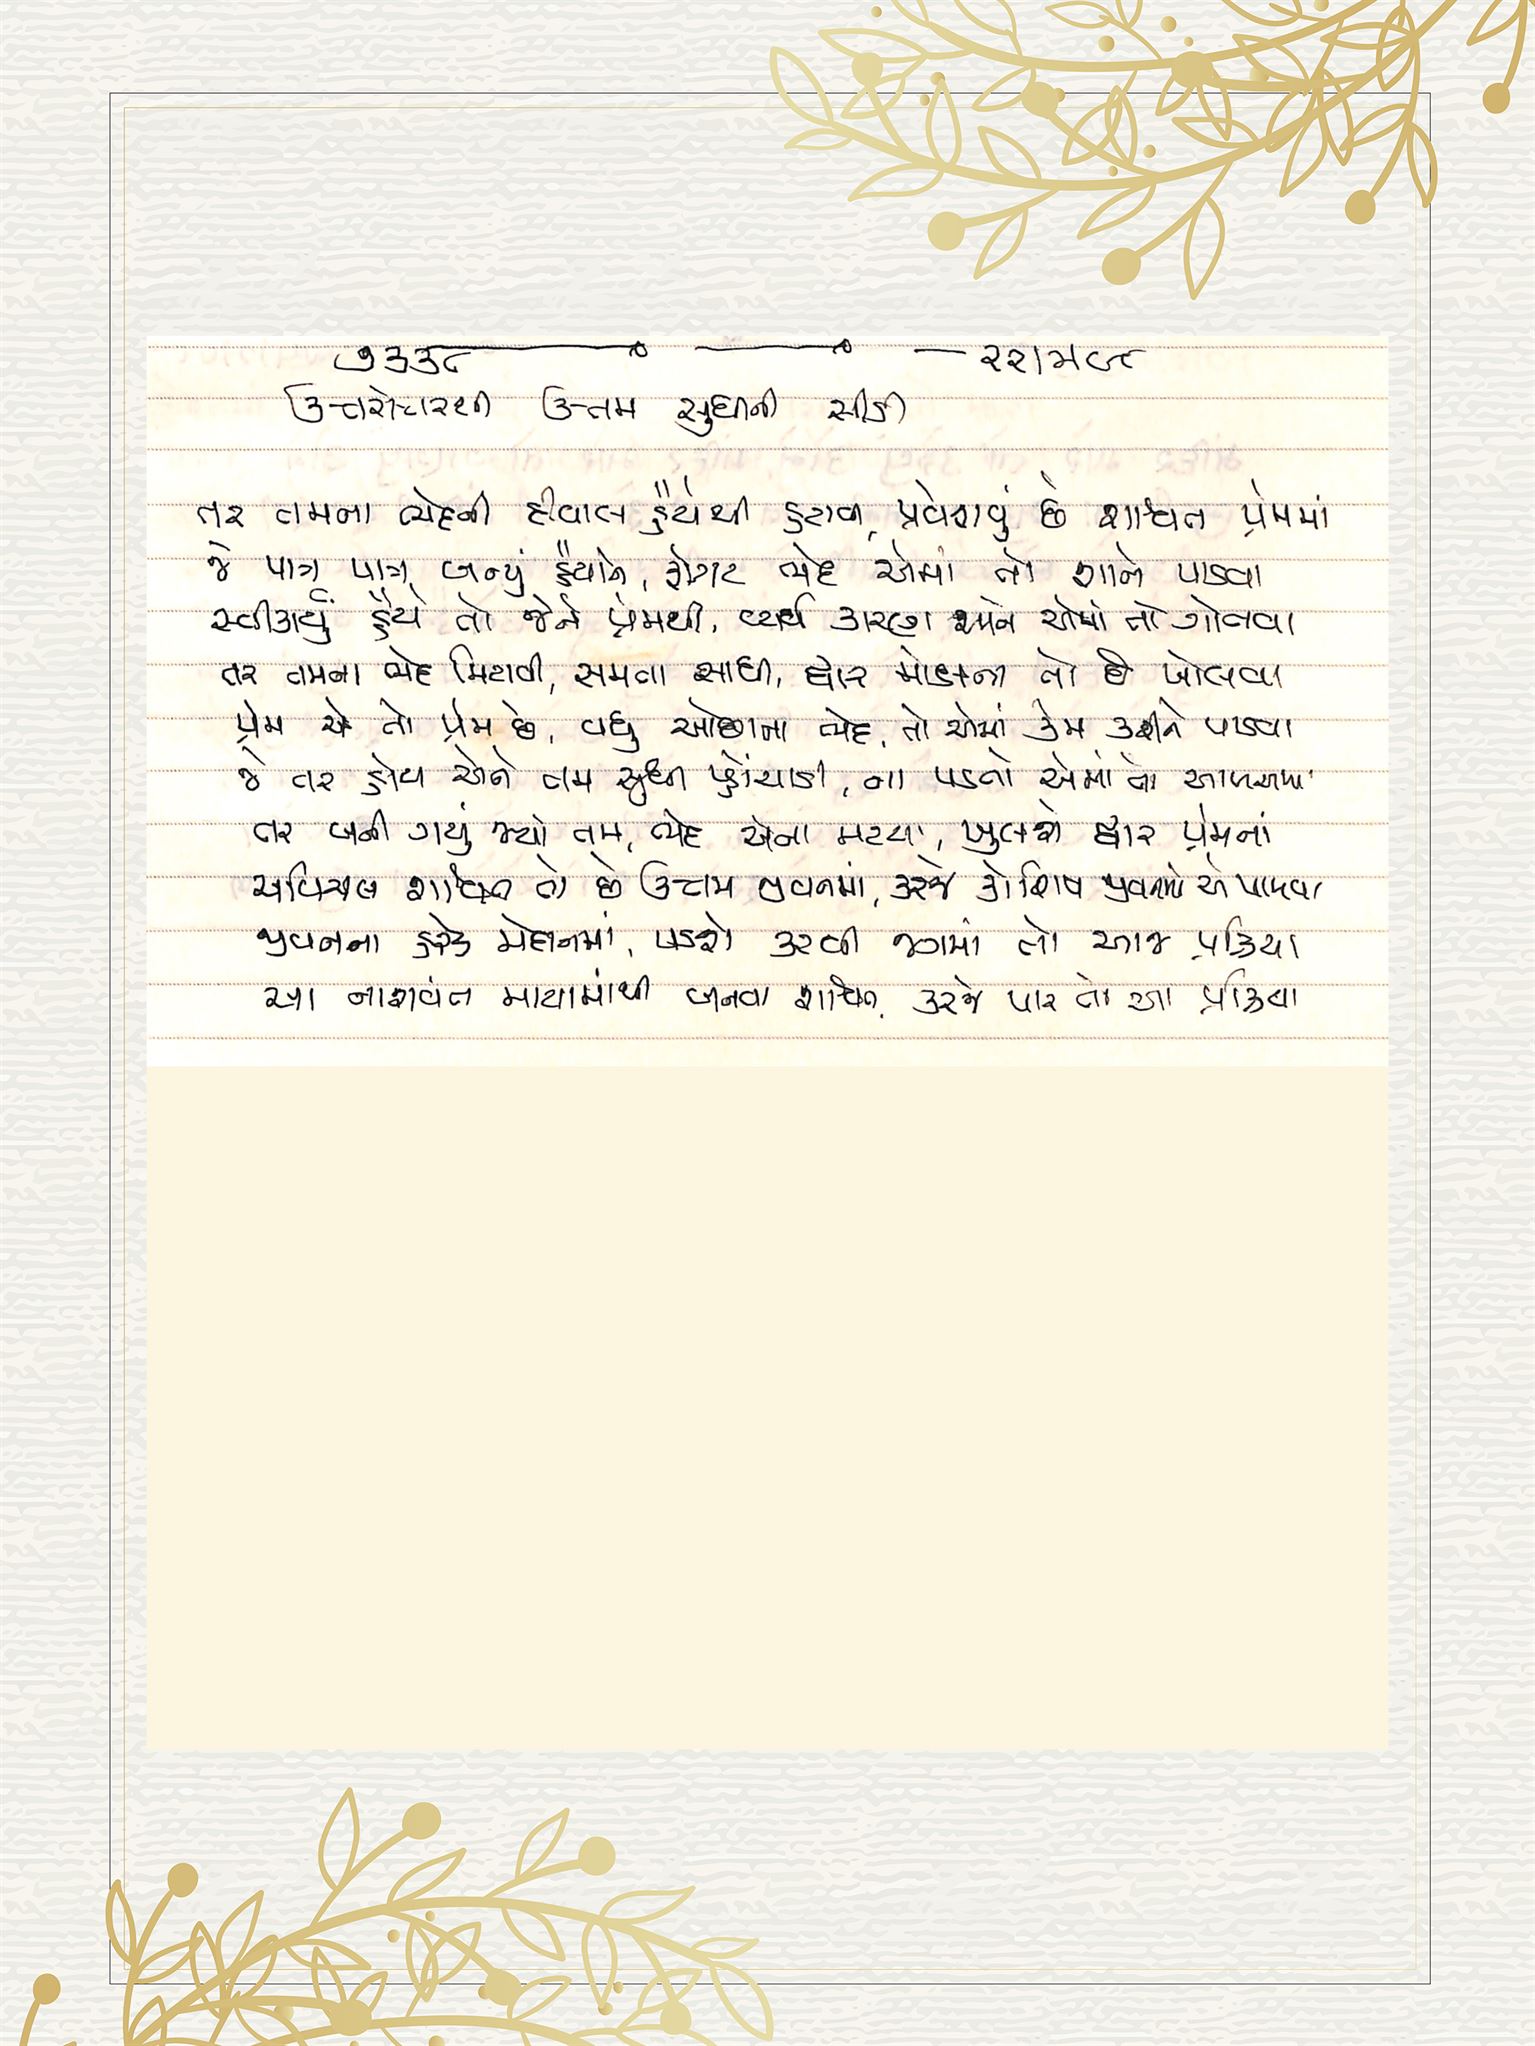 ૭૩૩૮ — — ૨૨ામજી
ઉત્તરોત્તરથી ઉત્તમ સુધીની સીડી
તર તમના ભેદની દીવાલ હૈયેથી હટાવી, પ્રવેશવું છે શાશ્વત પ્રેમમાં
જે પાત્ર પાત્ર બન્યું હૈયાને, ફોગટ ભેદ એમાં તો શાને પાડવા
સ્વીકાર્યું હૈયે તો જેને પ્રેમથી, વ્યર્થ કારણ શાને એમાં તો ગોતવા
તર તમના ભેદ મિટાવી, સમતા સાધી, દ્વાર મોક્ષના તો છે ખોલવા
પ્રેમ એ તો પ્રેમ છે, વધુ ઓછાના ભેદ, તો એમાં કેમ કરીને પાડવા
જે તર હોય એને તમ સુધી પહોંચાડી, ના પડતો એમાં તો
તર બની ગયું જ્યાં તમ, ભેદ એના મટયા, ખુલશે દ્વાર પ્રેમનાં
અવિચલ શાશ્વત તો છે ઉત્તમ જીવનમાં, કરજે કોશિષ જીવનમાં એ પામવા
જીવનના હરેક મેદાનમાં, પડશે કરવી જગમાં તો આજ પ્રક્રિયા
આ નાશવંત માયામાંથી બનવા શાશ્વત, કરજે પાર તો આ પ્રક્રિયા